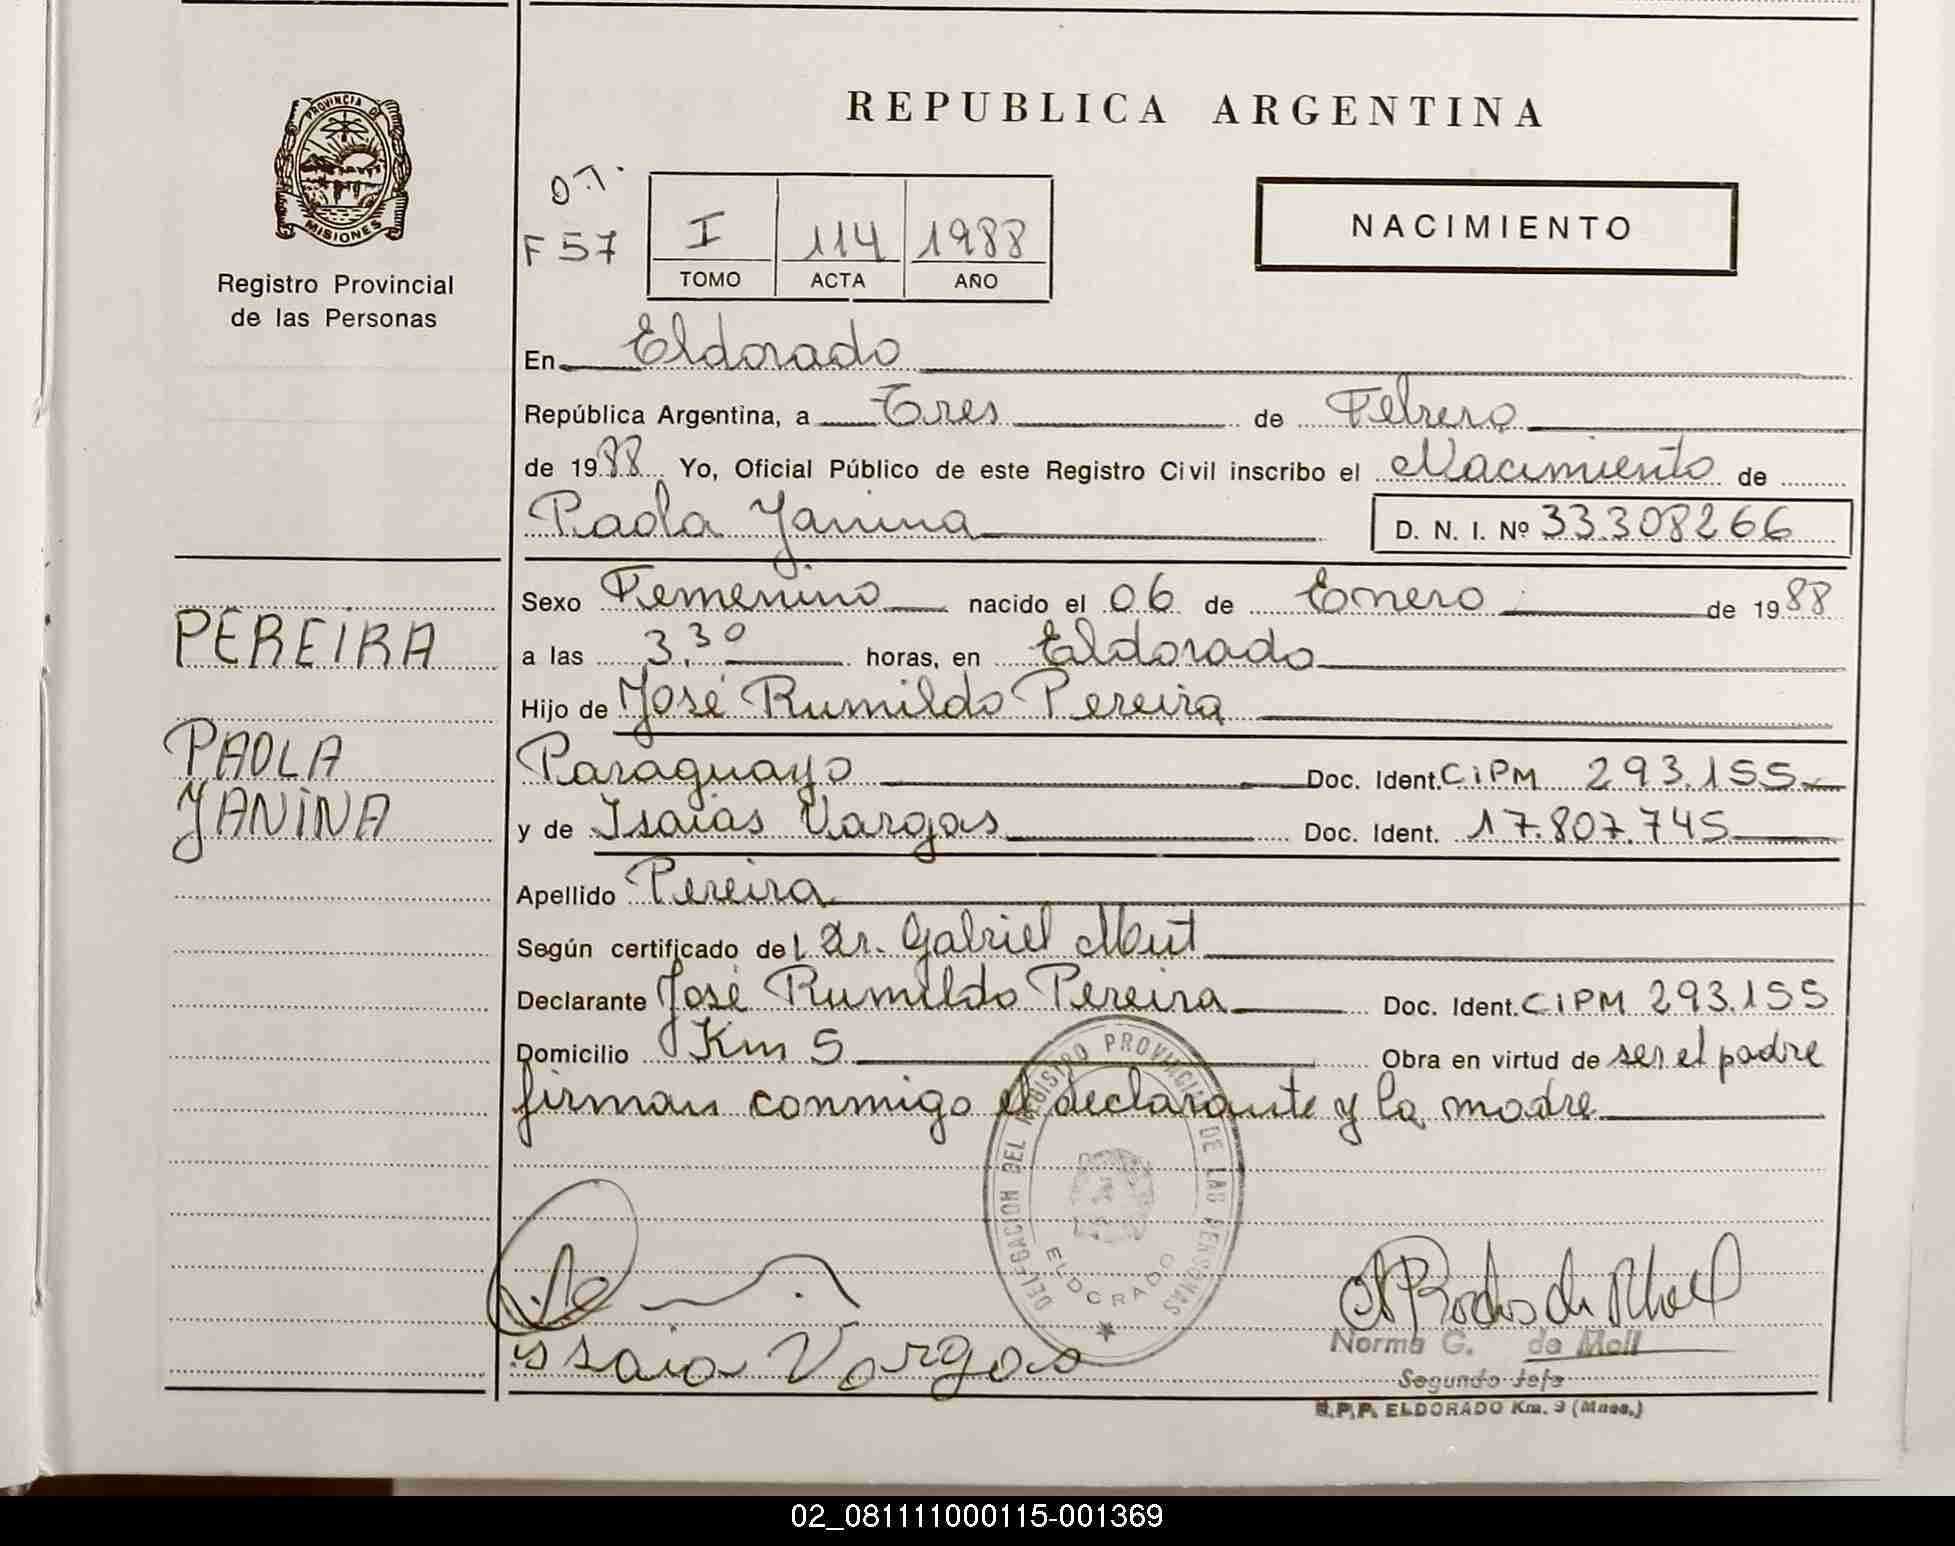 PROVINCIA DE
MISIONES
Registro Provincial
de las Personas
PEREIRA
PAOLA
YANINA
REPUBLICA ARGENTINA
F 57
I 114 1988
TOMO ACTA AÑO
NACIMIENTO
En Eldorado
República Argentina, a Tres de Febrero
de 1988 Yo, Oficial Público de este Registro Civil inscribo el Nacimiento de
Paola Yanina D. N. I. Nº 33.308266
Sexo Femenino nacido el 06 de Enero de 1988
a las 3,30 horas, en Eldorado
Hijo de José Rumildo Pereira
Paraguayo Doc. Ident. CIPM 293.155
y de Isaias Vargas Doc. Ident. 17.807.745
Apellido Pereira
Según certificado del Dr. Gabriel Mut
Declarante José Rumildo Pereira Doc. Ident. CIPM 293.155
Domicilio Km 5 Obra en virtud de ser el padre
firman conmigo el declarante y la madre
DELEGACION DEL REGISTRO PROVINCIAL DE LAS PERSONAS
ELDORADO
issaia Vargas
Norma G. de Moll
Segundo Jefe
R.P.P. ELDORADO Km. 9 (Mnes.)
02_081111000115-001369